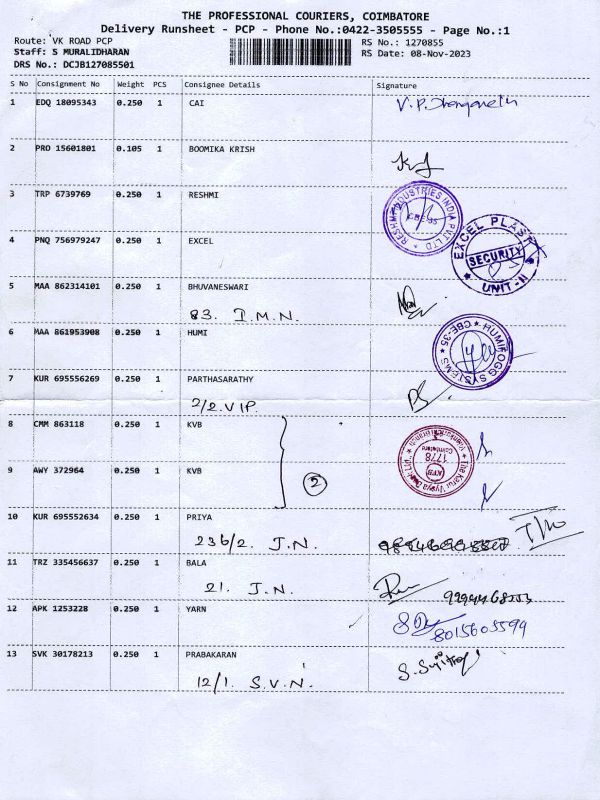 THE PROFESSIONAL COURIERS, COIMBATORE
Delivery Runsheet - PCP - Phone No.:0422-3505555 - Page No.:1
Route: VK ROAD PCP RS No.: 1270855
Staff: S MURALIDHARAN RS Date: 08-Nov-2023
DRS No.: DCJB127085501
S No Consignment No Weight PCS Consignee Details Signature
1 EDQ 18095343 0.250 1 CAI
2 PRO 15601801 0.105 1 BOOMIKA KRISH
3 TRP 6739769 0.250 1 RESHMI
RESHMI INDUSTRIES INDIA PVT LTD
CBE-35
4 PNQ 756979247 0.250 1 EXCEL
EXCEL PLAST
SECURITY
UNIT-II
5 MAA 862314101 0.250 1 BHUVANESWARI
83. I.M.N.
6 MAA 861953908 0.250 1 HUMI
HUMIFOGG SYSTEMS
CBE-35
7 KUR 695556269 0.250 1 PARTHASARATHY
2/2. VIP.
8 CMM 863118 0.250 1 KVB
The Karur Vysya Bank Ltd.
1778
Coimbatore
KVB
9 AWY 372964 0.250 1 KVB
2
10 KUR 695552634 0.250 1 PRIYA
236/2. J.N.
11 TRZ 335456637 0.250 1 BALA
21. J.N.
12 APK 1253228 0.250 1 YARN
8015605599
13 SVK 30178213 0.250 1 PRABAKARAN
12/1. S.V.N.